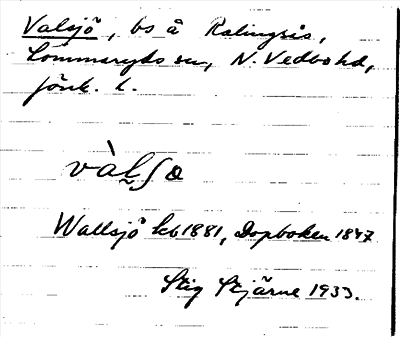 Valsjö, bs å Ralingsås,
Lommaryds sn, N. Vedbo hd,
Jönk. l.
vàlʃə
Wallsjö kb 1881, Dopboken 1847
Stig Stjärne 1933.